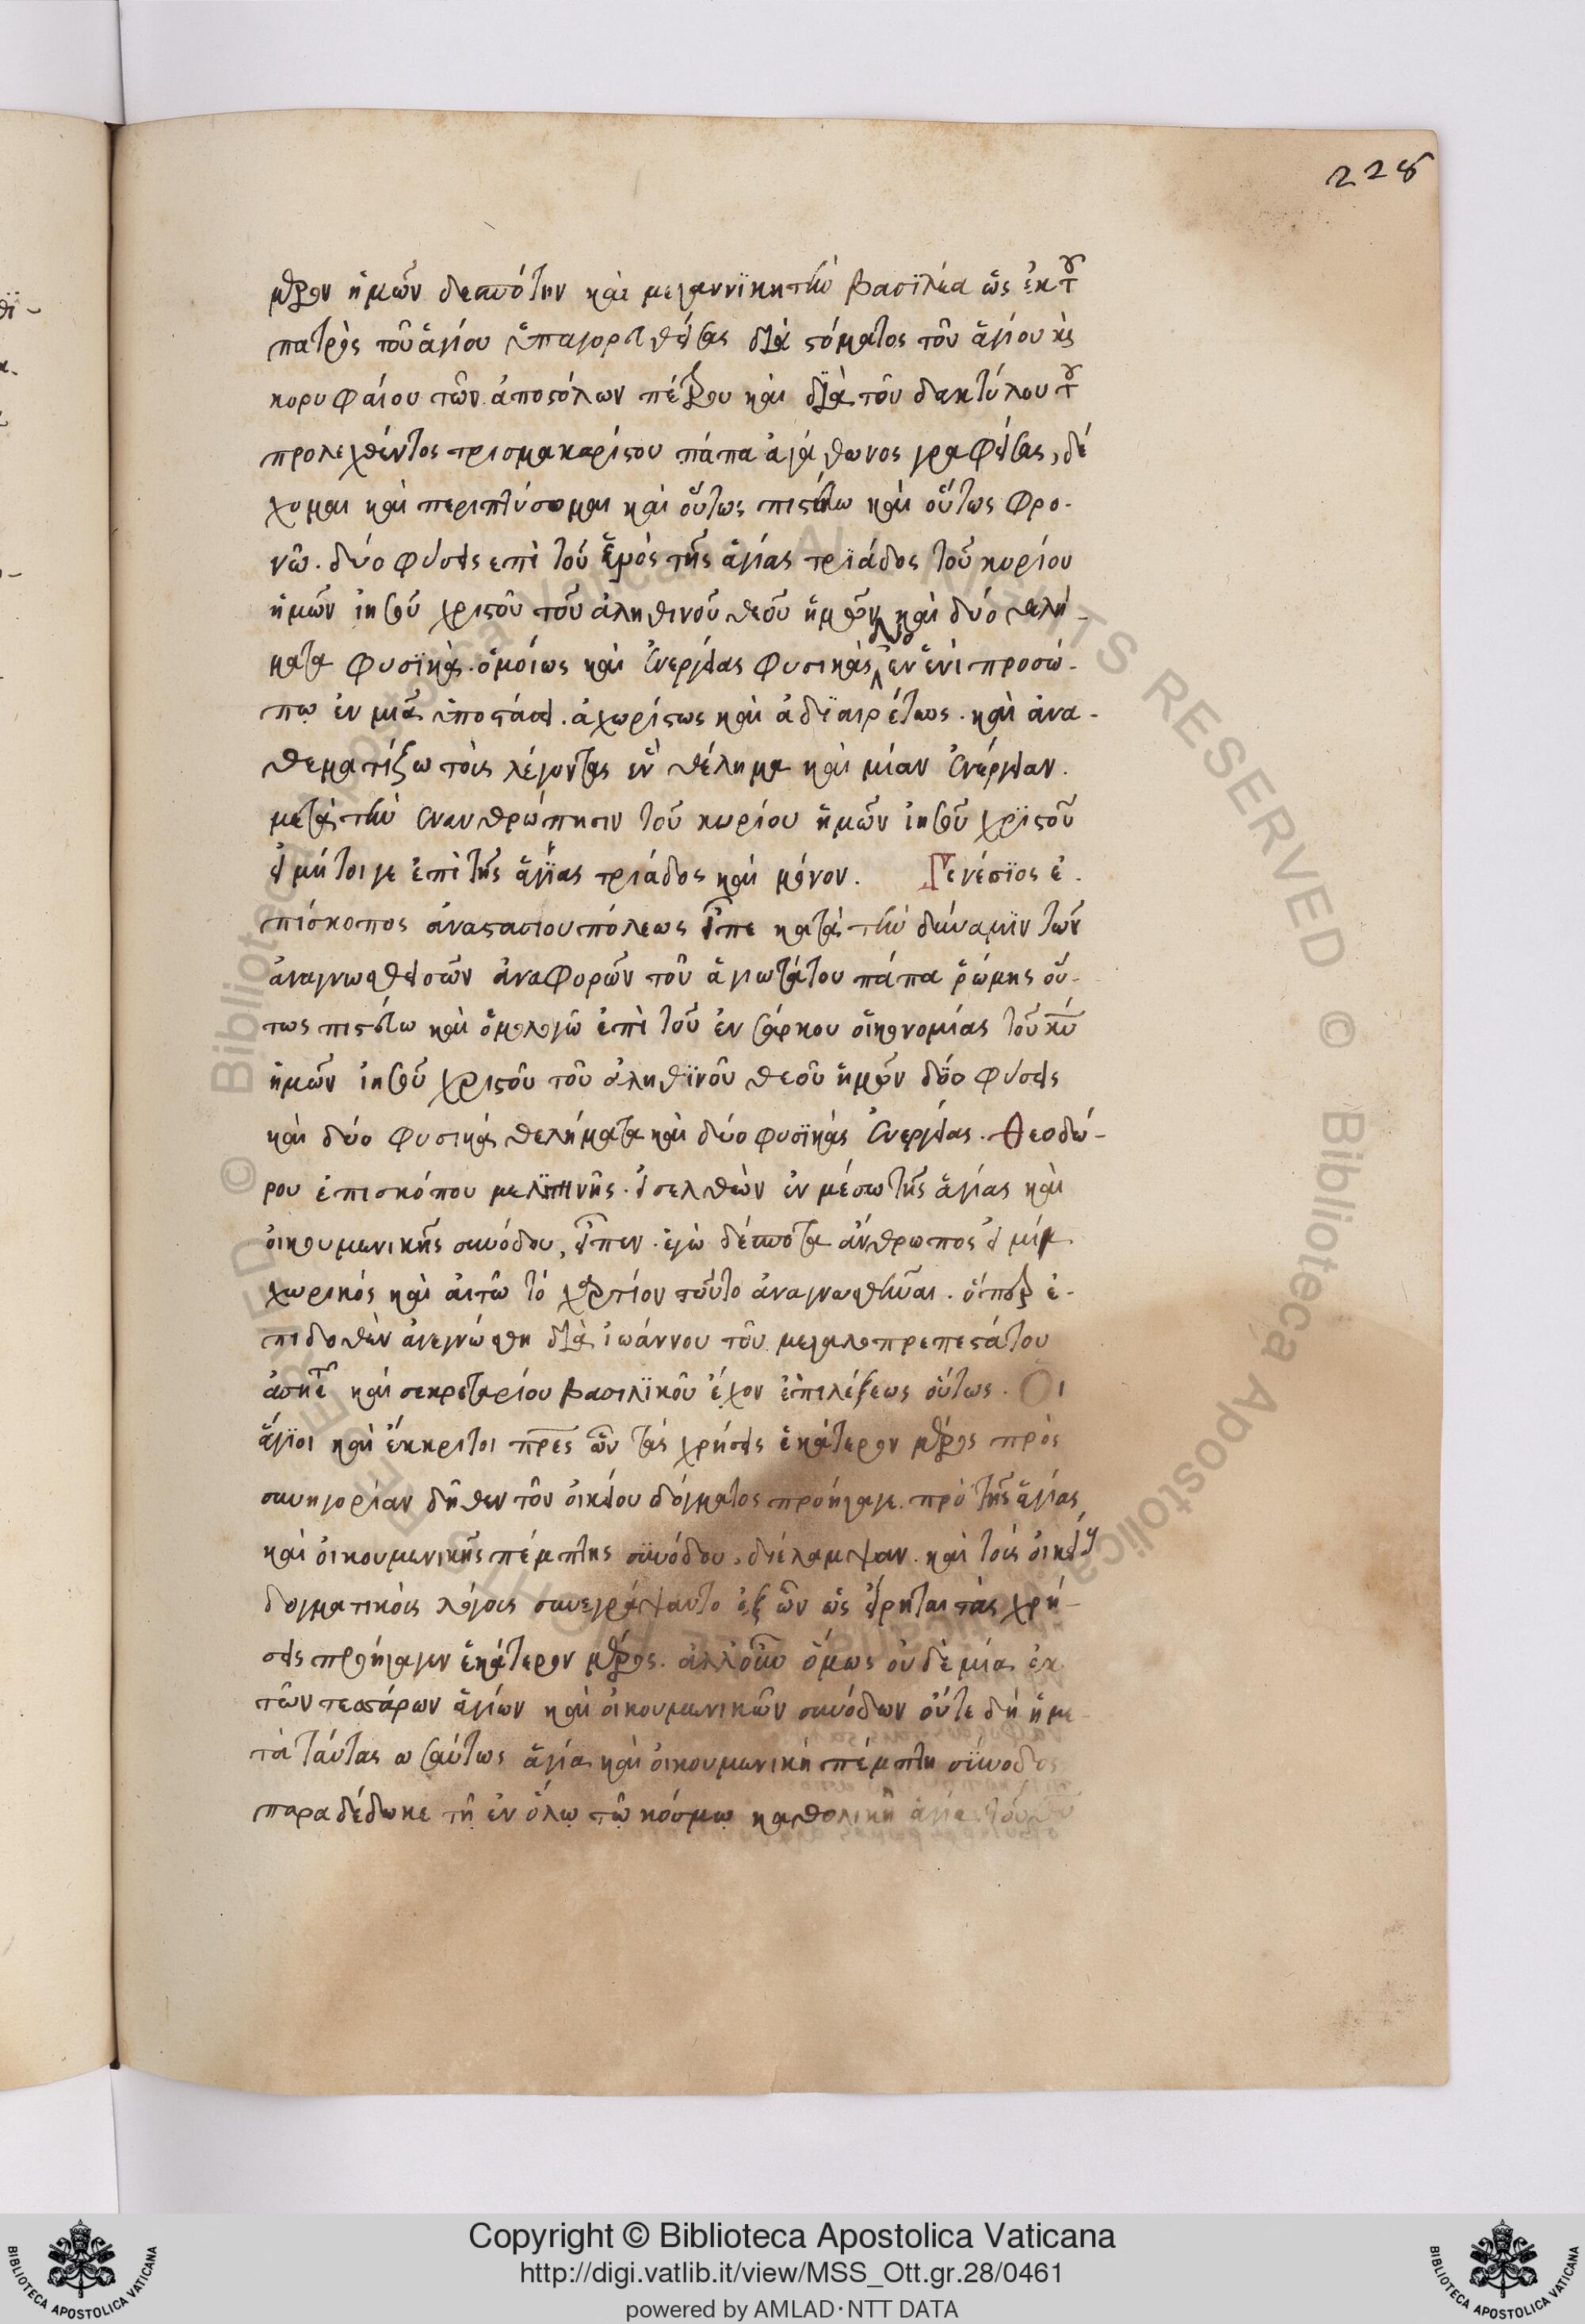 228
μέτερον ἡμῶν δεσπότην καὶ μεγαννίκητὴν βασϊλέα ὡς ἐκ τοῦ
πατρὸς τοῦ ἁγίου ὑπαγορευθείσας διὰ στόματος τοῦ ἁγίου καὶ
κορυφαίου τῶν ἀποστόλων πέτρου καὶ διὰ τοῦ δακτύλου τοῦ
προλεχθέντος τρισμακαρίστου πάπα ἀγάθωνος γραφείσας, δέ
χομαι καὶ περιπτύσομαι καὶ οὕτως πιστεύω καὶ οὕτως φρο-
νῶ. δύο φύσεις ἐπὶ τοῦ ἑνὸς τῆς ἁγίας τρϊάδος τοῦ κυρίου
ἡμῶν ἰησοῦ χριστοῦ τοῦ ἀληθινοῦ θεοῦ ἡμῶν καὶ δύο θελή-
ματα φυσϊκὰ. ὁμοίως καὶ ἐνεργείας φυσικὰς δύο ἐν ἑνὶ προσώ-
πῳ ἐν μιᾶ ὑποστάσει. ἀχωρίστως καὶ ἀδϊαιρέτως. καὶ ἀνα-
θεματίζω τοὺς λέγοντας ἓν θέλημα καὶ μίαν ἐνέργειαν.
μετὰ τὴν ἐνανθρώπησιν τοῦ κυρίου ἡμῶν ἰησοῦ χρϊστοῦ
εἰ μήτοιγε ἐπὶ τῆς ἁγϊας τριάδος καὶ μόνον. Γενέσϊος ἐ-
πίσκοπος ἀναστασιουπόλεως εἶπε κατὰ τὴν δύναμϊν τῶν
ἀναγνωσθεισῶν ἀναφορῶν τοῦ ἁγιωτάτου πάπα ῥώμης οὕ-
τως πιστεύω καὶ ὁμολογῶ ἐπὶ τοῦ ἐν σάρκου οἰκονομίας τοῦ κυ
ἡμῶν ἰησοῦ χριστοῦ τοῦ ἀληθϊνοῦ θεοῦ ἡμῶν δύο φύσεις
καὶ δύο φυσικὰ θελήματα καὶ δύο φυσϊκὰς ἐνεργείας. Θεοδώ-
ρου ἐπισκόπου μελϊτινῆς. εἰσελθὼν ἐν μέσω τῆς ἁγίας καὶ
οἰκουμενικῆς συνόδου, εἶπεν. ἐγὼ δέσποτα ἄνθρωπος εἰμὶ
χωρικός καὶ αἰτῶ τὸ χαρτίον τοῦτο ἀναγνωσθῆναι. ὅπερ ἐ-
πιδοθὲν ἀνεγνώσθη διὰ ἰωάννου τοῦ μεγαλοπρεπεστάτου
ἀσηκρῆτις καὶ σεκρεταρίου βασιλϊκοῦ ἔχον ἐπιλέξεως οὕτως. Οἱ
ἅγϊοι καὶ ἔκκριτοι πρες ὧν τὰς χρήσεις ἑκάτερον μέρος πρὸς
συνηγορίαν δῆθεν τοῦ οἰκείου δόγματος προήγαγε. πρὸ τῆς ἁγίας
καὶ οἰκουμενικῆς πέμπτης συνόδου, διέλαμψαν. καὶ τοῖς οἰκείοις
δογματικοῖς λόγοις συνεγράψαντο ἐξ ὧν ὡς εἴρηται τὰς χρή-
σεις προήγαγεν ἑκάτερον μέρος. ἀλλοὖν ὅμως οὐδὲ μία ἐκ
τῶν τεσσάρων ἁγίων καὶ οἰκουμενικῶν συνόδων οὔτε δὴ ἡ με
τὰ ταύτας ὡσαύτως ἁγία καὶ οἰκουμενικὴ πέμπτη σύνοδος
παραδέδωκε τῇ ἐν ὅλῳ τῷ κόσμῳ καθολικῆ ἁγία τοῦ θυ
© Biblioteca Apostolica Vaticana ALL RIGHTS RESERVED
Copyright © Biblioteca Apostolica Vaticana
http://digi.vatlib.it/view/MSS_Ott.gr.28/0461
powered by AMLAD·NTT DATA
BIBLIOTECA APOSTOLICA VATICANA
BIBLIOTECA APOSTOLICA VATICANA